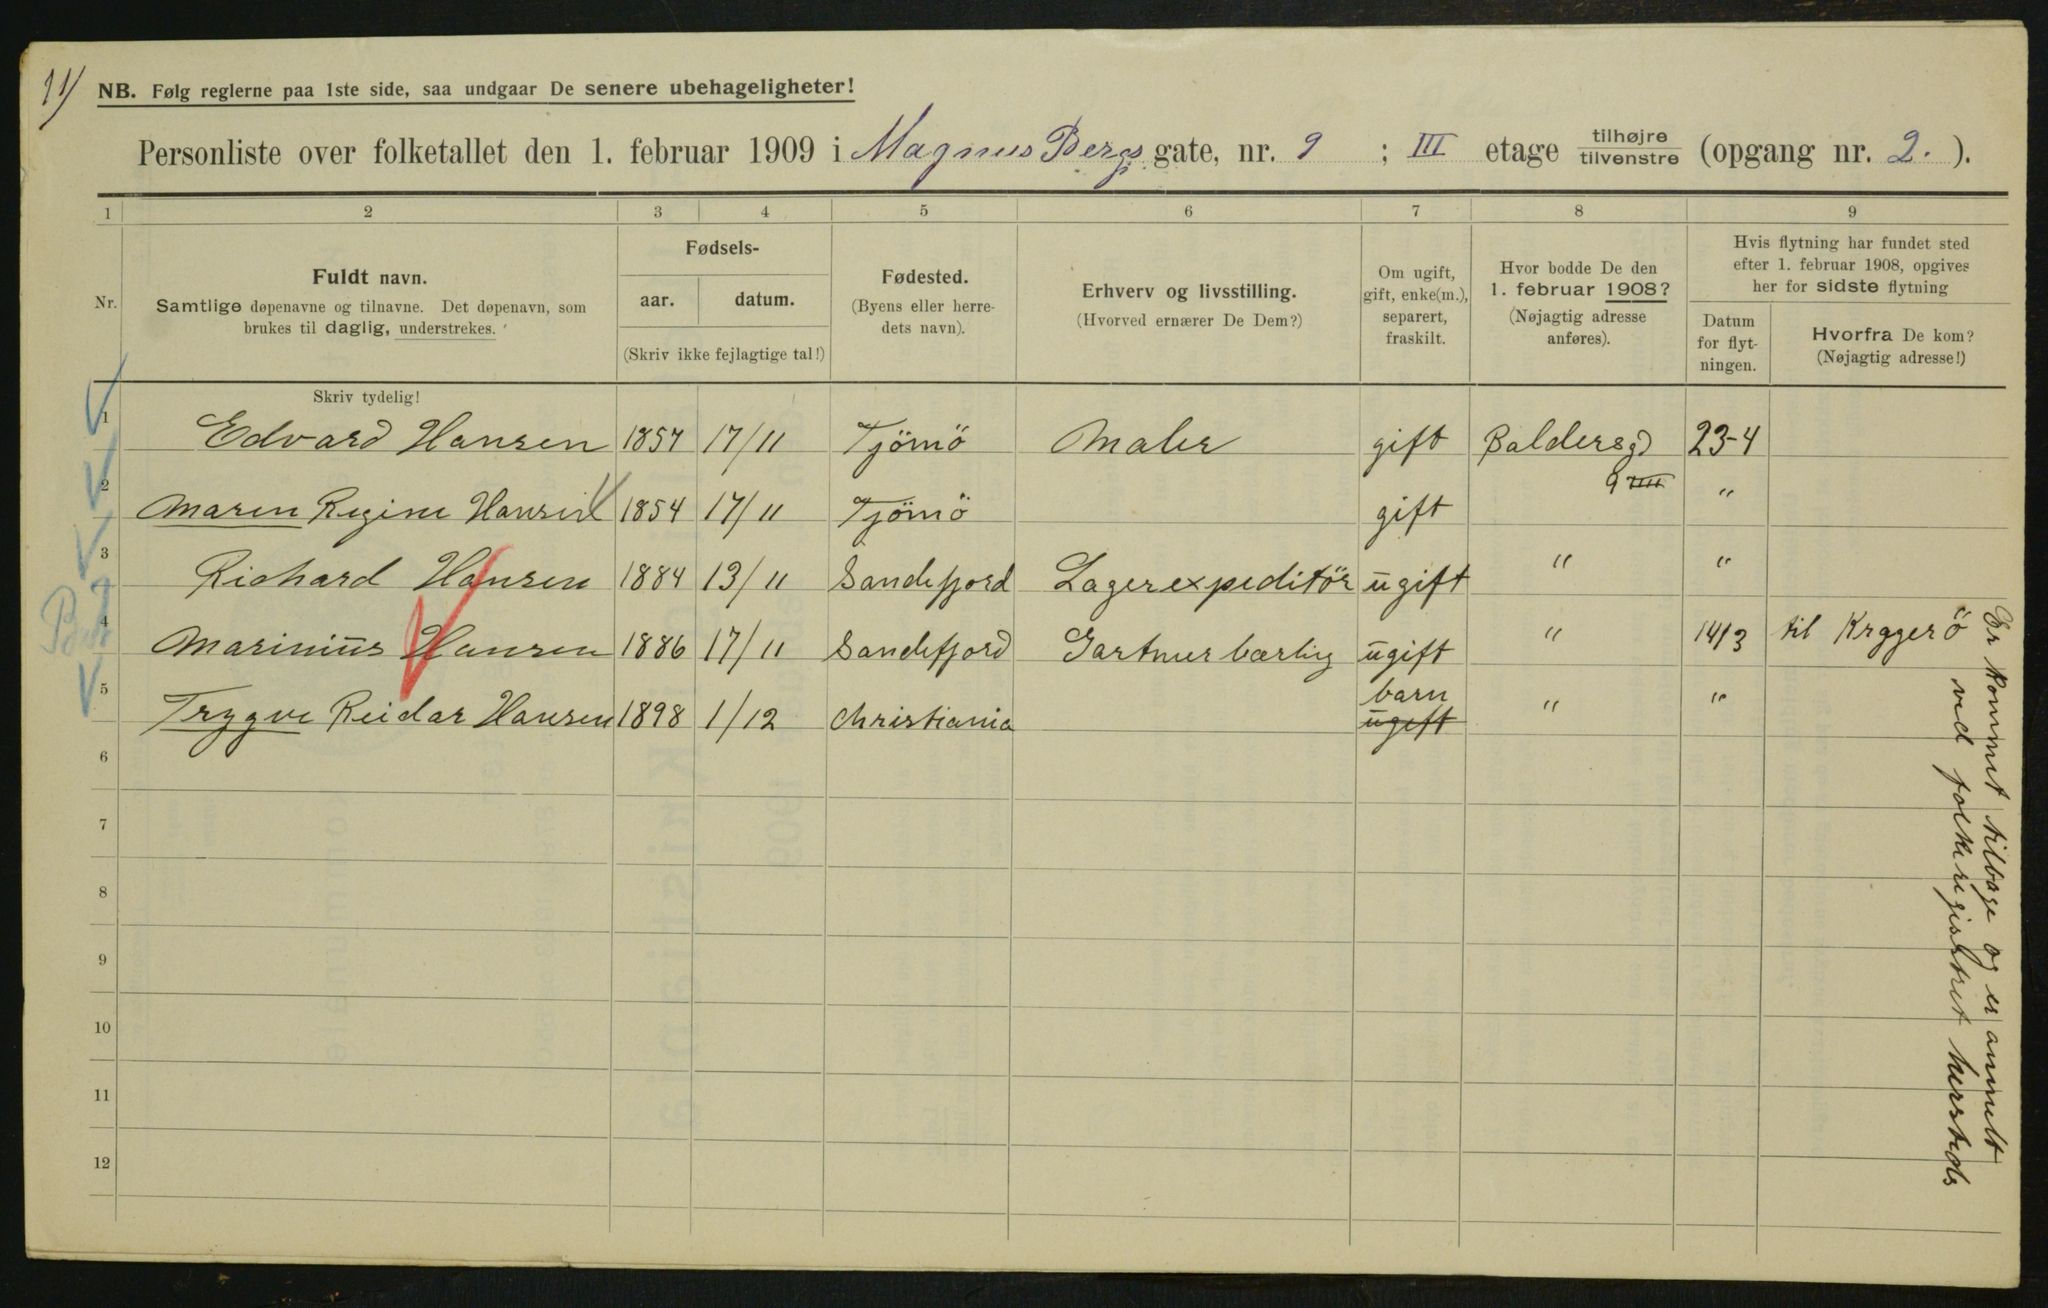 11)
NB. Følg reglerne paa 1ste side, saa undgaar De senere ubehageligheter!
Personliste over folketallet den 1. februar 1909 i Magnus Bergs gate, nr. 9 ; III etage tilhøjre / tilvenstre (opgang nr. 2. ).
1 2 3 4 5 6 7 8 9
Nr.
Fuldt navn.
Samtlige døpenavne og tilnavne. Det døpenavn, som
brukes til daglig, understrekes.
Fødsels-
aar. datum.
(Skriv ikke fejlagtige tal!)
Fødested.
(Byens eller herre-
dets navn).
Erhverv og livsstilling.
(Hvorved ernærer De Dem?)
Om ugift,
gift, enke(m.),
separert,
fraskilt.
Hvor bodde De den
1. februar 1908?
(Nøjagtig adresse
anføres).
Hvis flytning har fundet sted
efter 1. februar 1908, opgives
her for sidste flytning
Datum
for flyt-
ningen.
Hvorfra De kom?
(Nøjagtig adresse!)
Skriv tydelig!
1 Edvard Hansen 1857 17/11 Tjömö Maler gift Baldersgd 9 23-4
2 Maren Regine Hansen 1854 17/11 Tjömö gift "
3 Richard Hansen 1884 13/11 Sandefjord Lagerexpeditör ugift " "
4 Marinius Hansen 1886 17/11 Sandefjord Gartner ugift " 14/3 til Kragerö
5 Trygve Reidar Hansen 1898 1/12 Christiania barn ugift " "
6
7
8
9
10
11
12
Er kommet tilbage og er anmelt
ved folkeregistret hersteds